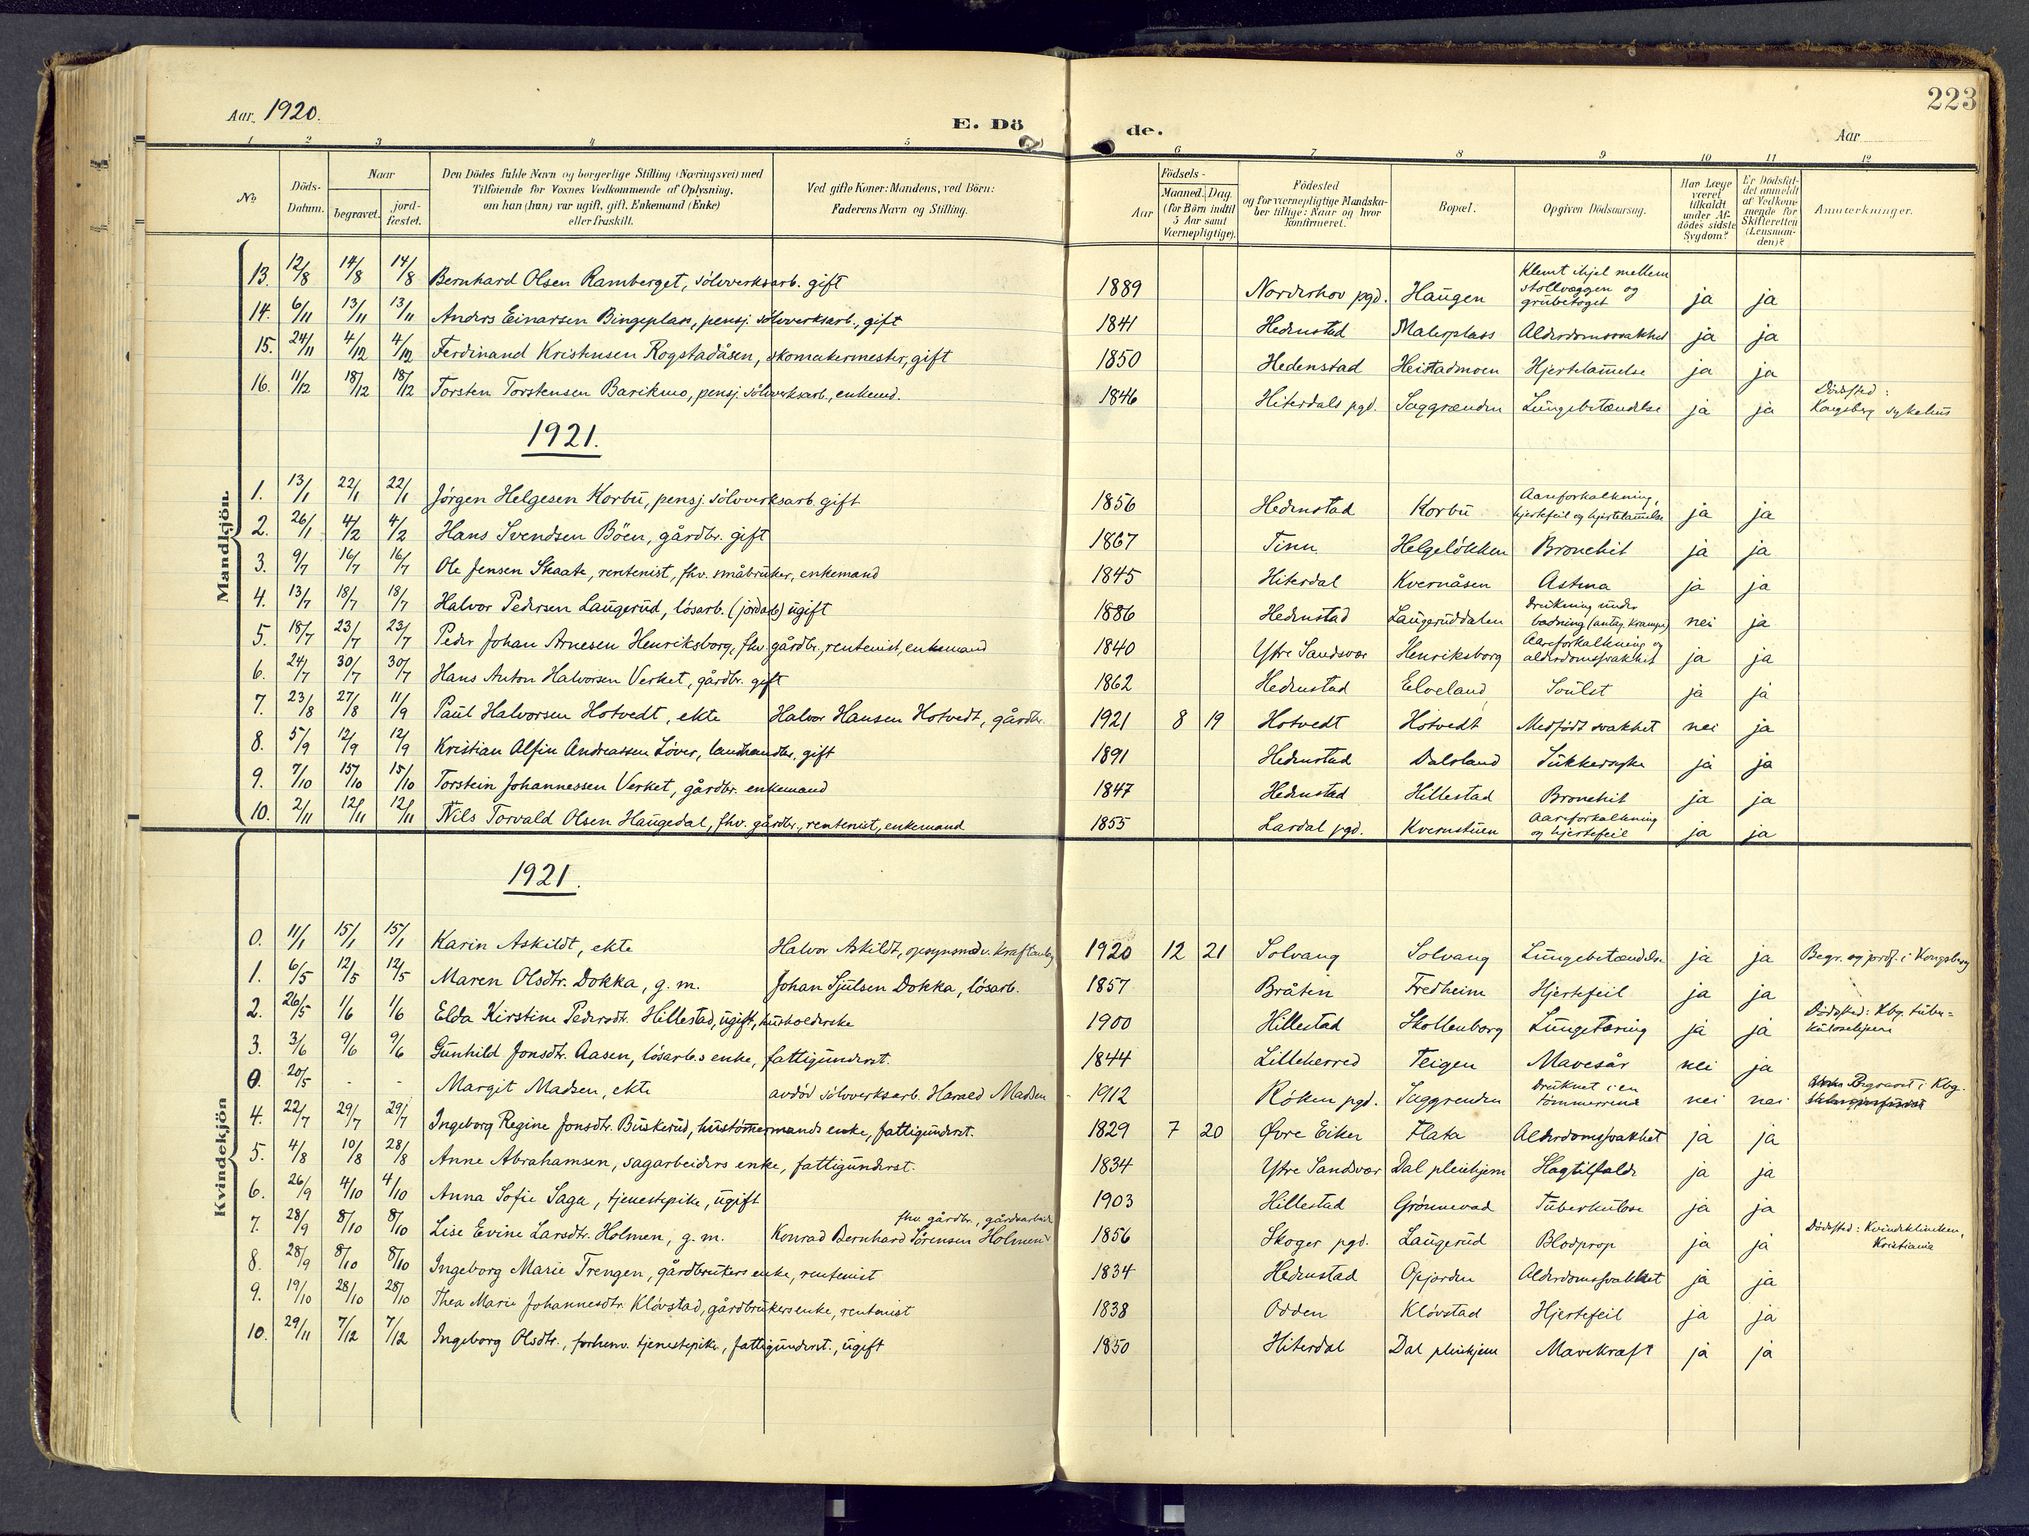 Aar 1920.
E. Dö de.
Aar
223
1 2 3 4 5 6 7 8 9 10 11 12
No
Döds-Datum.
Naar
begravet.
jord-fæstet.
Den Dödes fulde Navn og borgerlige Stilling (Næringsvei) med
Tilföiende for Voxnes Vedkommende af Oplysning,
om han (hun) var ugift, gift, Enkemand (Enke)
eller fraskilt.
Ved gifte Koner: Mandens, ved Börn:
Faderens Navn og Stilling.
Födsels-
Aar
Maaned. Dag.
(for Börn indtil
5 Aar samt
Værnepligtige).
Födested
og for værnepligtige Mandska-
ber tillige: Naar og hvor
konfirmeret.
Bopæl.
Opgiven Dödsaarsag.
Har Læge
været
tilkaldt
under Af-
dødes sidste
Sygdom?
Er Dödsfal-
det anmeldt
af Vedkom-
mende for
Skifteretten
(Lensman-
den)?
Anmærkninger.
Mandkjön.
13. 12/8 14/8 14/8 Bernhard Olsen Ramberget, sölvverksarb. gift 1889 Norderhov pgd. Haugen Klemt ihjel mellem stollvæggen og grubetoget ja ja
14. 6/11 13/11 13/11 Anders Einarsen Bingeplass, pensj. sölvverksarb., gift 1841 Hedenstad Malerplass Alderdomssvakhet ja ja
15. 24/11 4/12 4/12 Ferdinand Kristensen Rogstadåsen, skomakermester, gift 1850 Hedenstad Heistadmoen Hjertelamelse ja ja
16. 11/12 18/12 18/12 Torsten Torstensen Barikmo, pensj. sölvverksarb., enkemd. 1846 Hiterdals pgd. Saggrenden Lungebetændelse ja ja Dödssted: Kongsberg sykehus
1921.
1. 13/1 22/1 22/1 Jørgen Helgesen Korbu, pensj. sölvverksarb gift 1856 Hedenstad Korbu Aareforkalkning, hjertefeil og hjertelamelse ja ja
2. 26/1 4/2 4/2 Hans Svendsen Böen, gårdbr. gift 1867 Tinn Helgeløkken Bronchit ja ja
3. 9/7 16/7 16/7 Ole Jensen Skaate, rentenist, fhv. småbruker, enkemand 1845 Hiterdal Kvernåsen Astma ja ja
4. 13/7 18/7 18/7 Halvor Pedersen Laugerud, lösarb. (jordarb) ugift 1886 Hedenstad Laugeruddalen Drukning under badning (antag. krampe) nei ja
5. 18/7 23/7 23/7 Peder Johan Arnesen Henriksborg, fhv. gårdbr., rentenist, enkemand 1840 Ytre Sandsvær Henriksborg Aareforkalkning og alderdomssvakhet ja ja
6. 24/7 30/7 30/7 Hans Anton Halvorsen Verket, gårdbr. gift 1862 Hedenstad Elveland Svulst ja ja
7. 23/8 27/8 11/9 Paul Halvorsen Hotvedt, ekte Halvor Hansen Hotvedt, gårdbr. 1921 8 19 Hotvedt Hotvedt Medfödt svakhet nei ja
8. 5/9 12/9 12/9 Kristian Alfin Andreassen Löver, landhandler, gift 1891 Hedenstad Dalsland Sukkersyke ja ja
9. 7/10 15/10 15/10 Torstein Johannessen Verket, gårdbr. enkemand 1847 Hedenstad Hillestad Bronchit ja ja
10. 2/11 12/11 12/11 Nils Torvald Olsen Haugedal, fhv. gårdbr., rentenist, enkemand 1855 Lardal pgd. Kvernstuen Aareforkalkning og hjertefeil ja ja
1921.
Kvindekjön
0. 11/1 15/1 15/1 Karin Askildt, ekte Halvor Askildt, opsynsmd v. kraftanleg 1920 12 21 Solvang Solvang Lungebetændelse ja ja Begr. og jordf. i Kongsberg
1. 6/5 12/5 12/5 Maren Olsdtr. Dokka, g. m. Johan Sjulsen Dokka, lösarb. 1857 Bråten Fredheim Hjertefeil ja ja
2. 26/5 1/6 1/6 Elda Kirstine Pedersdtr. Hillestad, ugift, husholderske 1900 Hillestad Skollenborg Lungetæring ja ja Dödssted: Kbg. tuberkulosehjem
3. 3/6 9/6 9/6 Gunhild Jonsdtr. Aasen, lösarb.s enke, fattigunderst. 1844 Lilleherred Teigen Mavesår nei ja
0. 20/5 - - Margit Madsen, ekte avdöd sölvverksarb. Harald Madsen 1912 Röken pgd. Saggrenden Druknet i en tömmerrenne nei nei Begravet i Kbg.
4. 22/7 29/7 29/7 Ingeborg Regine Jonsdtr. Buskerud, hustömermands enke, fattigunderst. 1829 7 20 Øvre Eiker Flata Alderdomssvakhet ja ja
5. 4/8 10/8 28/8 Anne Abrahamsen, sagarbeiders enke, fattigunderst. 1834 Ytre Sandsvær Dal pleiehjem Slagtilfælde ja ja
6. 26/9 4/10 4/10 Anna Sofie Saga, tjenestepike, ugift 1903 Hillestad Grönnevad Tuberkulose ja ja
7. 28/9 8/10 8/10 Lise Evine Larsdtr. Holmen, g. m. fhv. gårdbr., gårdsarbeider Konrad Bernhard Sörensen Holmen 1856 Skoger pgd. Laugerud Blodprop ja ja Dödssted: Kvindeklinikken, Kristiania
8. 28/9 8/10 8/10 Ingeborg Marie Trengen, gårdbrukers enke, rentenist 1834 Hedenstad Opjorden Alderdomssvakhet ja ja
9. 19/10 28/10 28/10 Thea Marie Johannesdtr. Klövstad, gårdbrukers enke, rentenist 1838 Odden Klövstad Hjertefeil ja ja
10. 29/11 7/12 7/12 Ingeborg Olsdtr., forhenv. tjenestepike, fattigunderst., ugift 1850 Hiterdal Dal pleiehjem Mavekræft ja ja